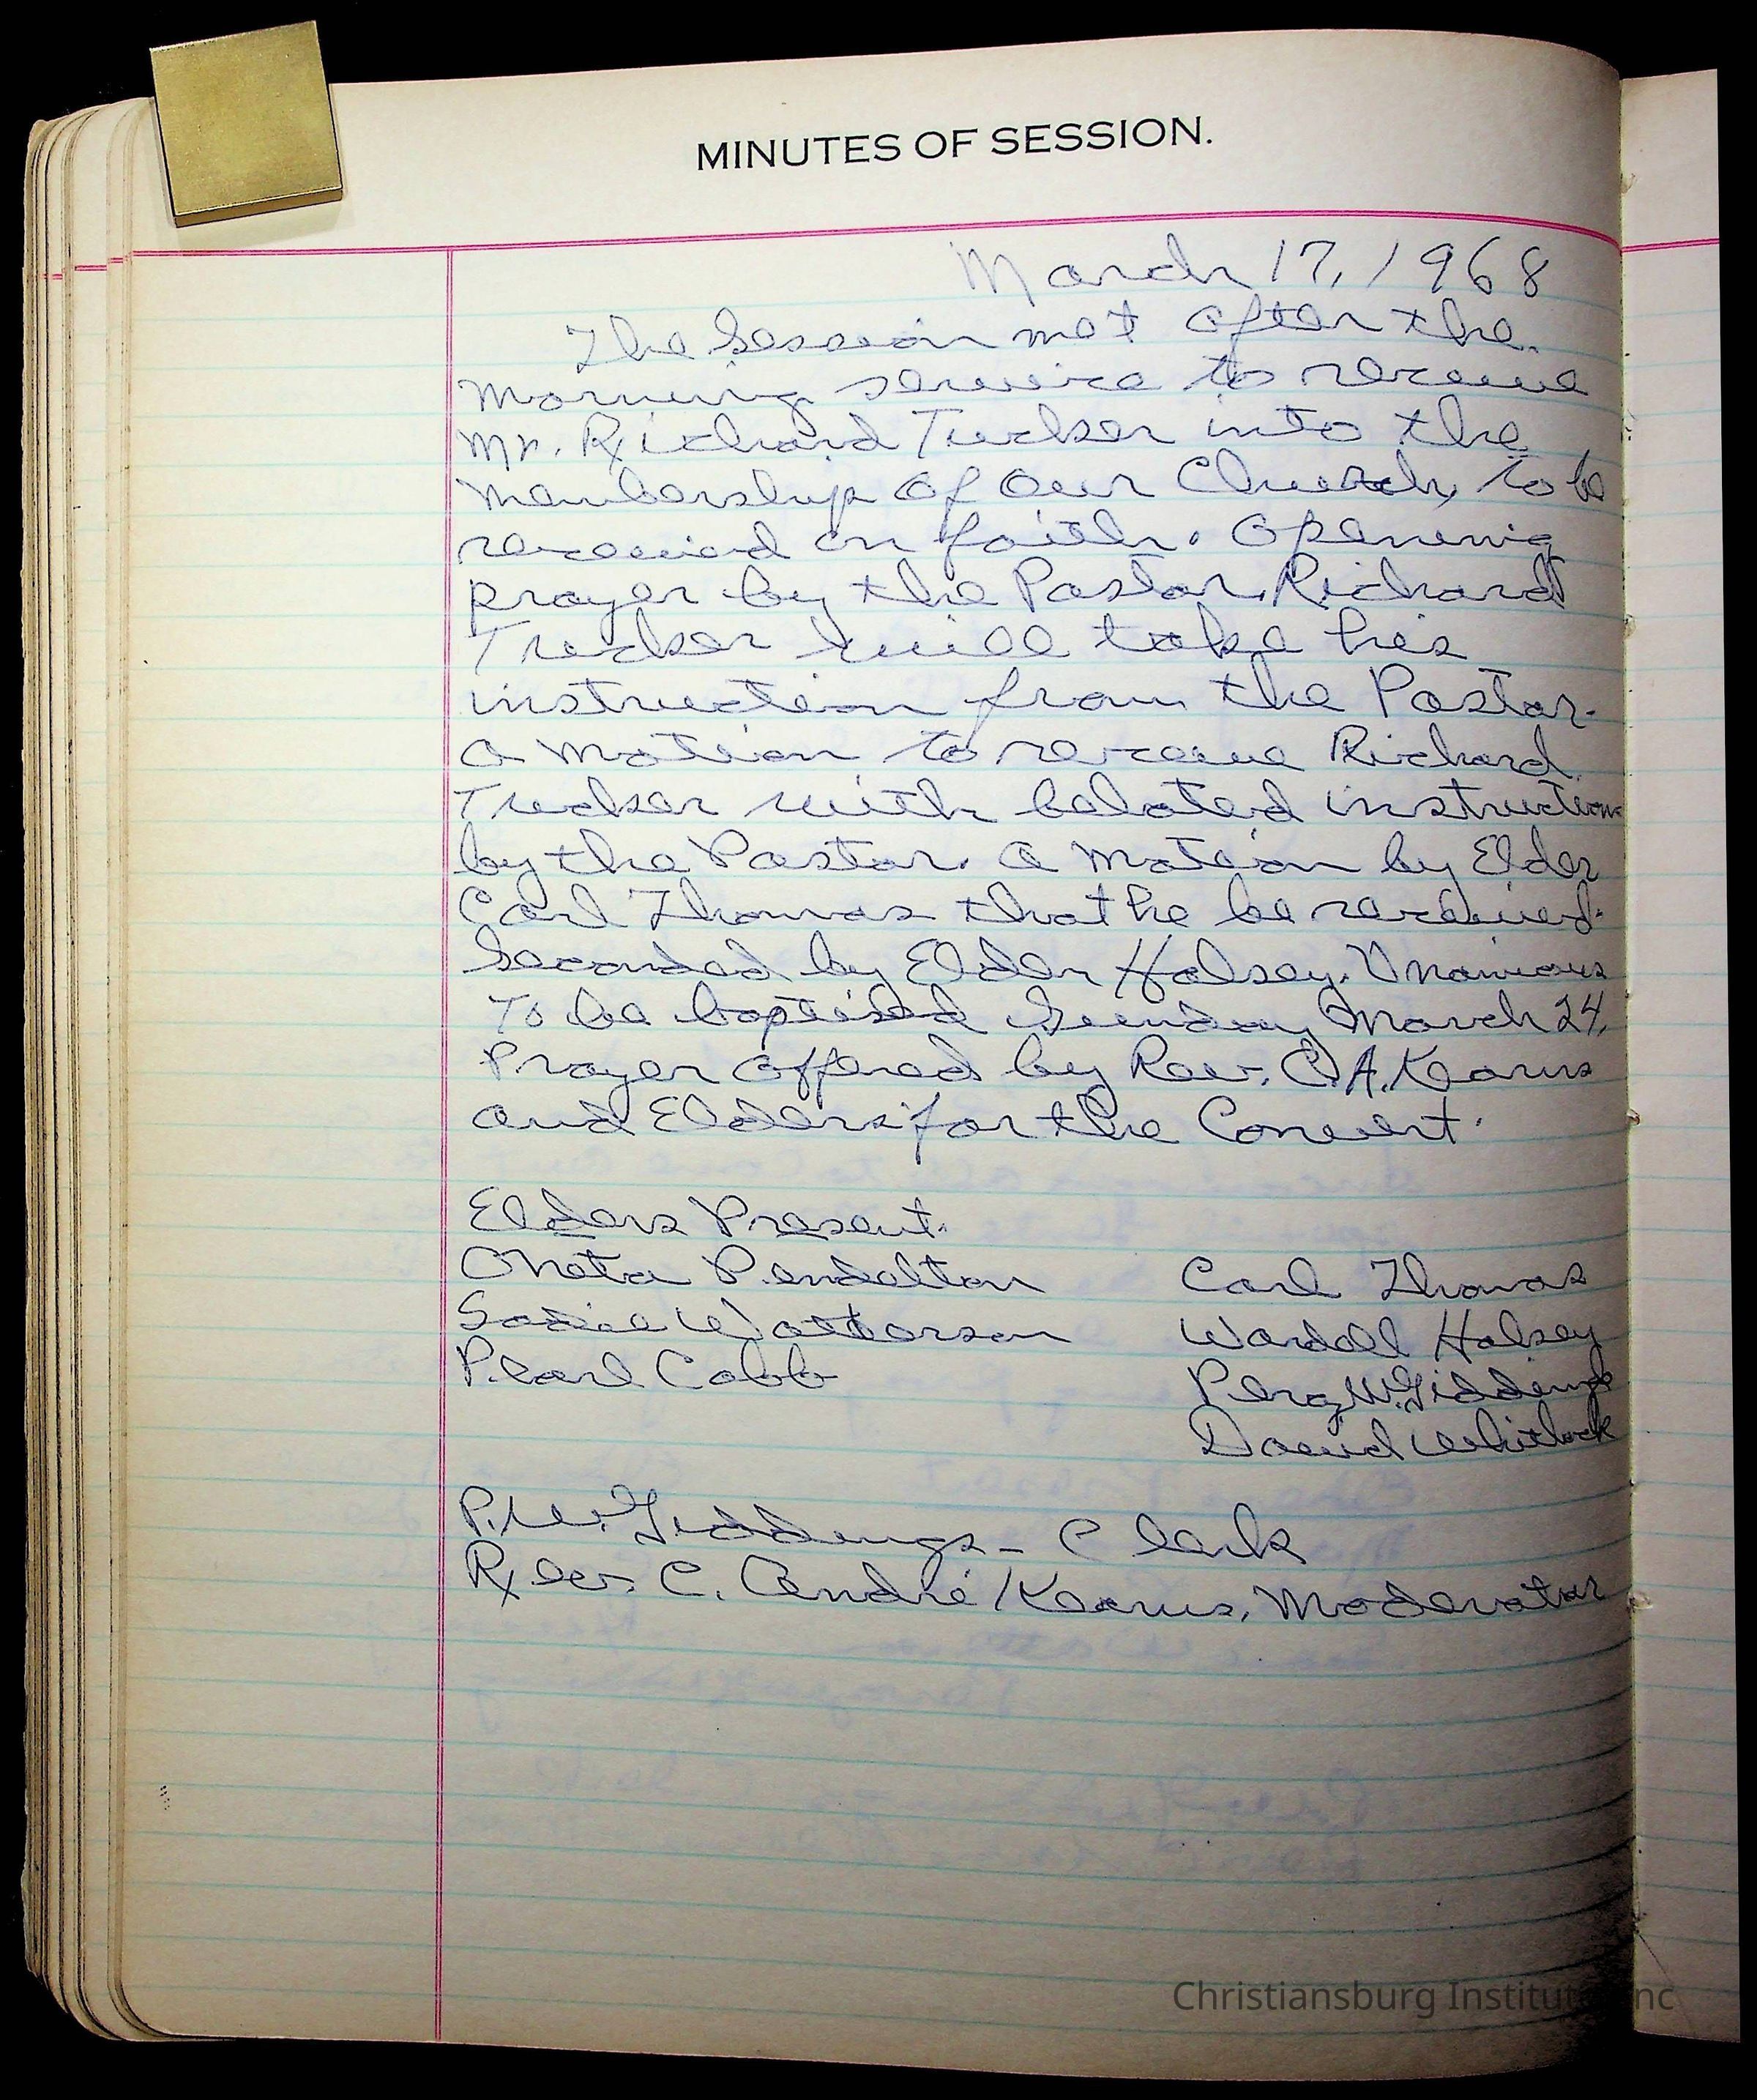 MINUTES OF SESSION.
March 17, 1968
The Session met after the
morning service to receive
Mr. Richard Tucker into the
membership of our Church, to be
received on faith. Opening
prayer by the Pastor. Richard
Tucker will take his
instruction from the Pastor.
A motion to receive Richard
Tucker with belated instruction
by the Pastor. A motion by Elder
Carl Thomas that he be received.
Seconded by Elder Halsey. Unanious
To be baptised Sunday March 24.
Prayer offered by Rev. C.A. Kearns
and Elders for the Convert.
Elders Present.
Oneta Pendelton Carl Thomas
Sadie Watterson Wardell Halsey
Pearl Cobb Percy W. Giddings
David Whitlock
P.W. Giddings - Clerk
Rev. C. André Kearns, Moderator
Christiansburg Institute Inc